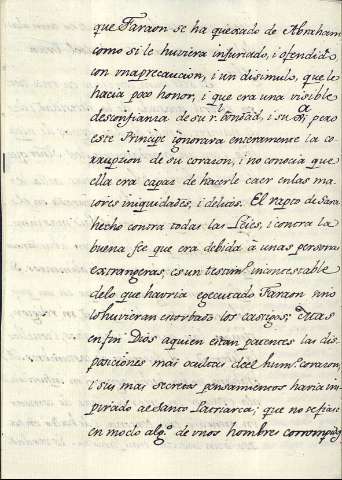 que Faraon se ha quexado de Abraham
como si le huviera injuriado, i ofendido
con una precaucion, i un disimulo, que le
hacia poco honor, i que era una visible
desconfianza de su r.l bondad, i su
este Principe ignorara enteramente la co-
rrupzion de su corazon, i no conocia que
ella era capaz de hacerle caer en las ma-
iores iniquidades, i delitos. El rapto de Sara
hecho contra todas las Leies, i contra la
buena fee que era debida à unas personas
extrangeras, es un testim.o incontestable
de lo que havria egecutado Faraon si no
lo huvieran enorbado los castigos;
en fin Dios a quien eran patentes las dis-
posiciones mas ocultas del hum.o corazon,
i sus mas secretos pensamientos havia ins-
pirado al Santo Patriarca; que no se fiase
en modo alg.o de unos hombres corrompidos